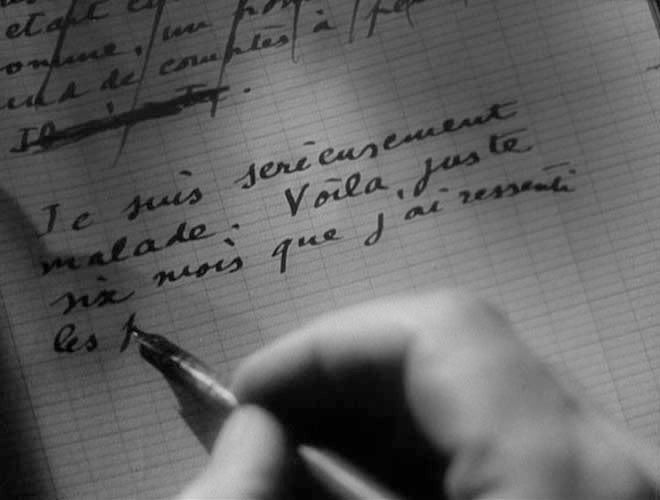 était
homme, un
de comptes à
Il
Je suis serieusement
malade. Voila, juste
six mois que j'ai ressenti
les